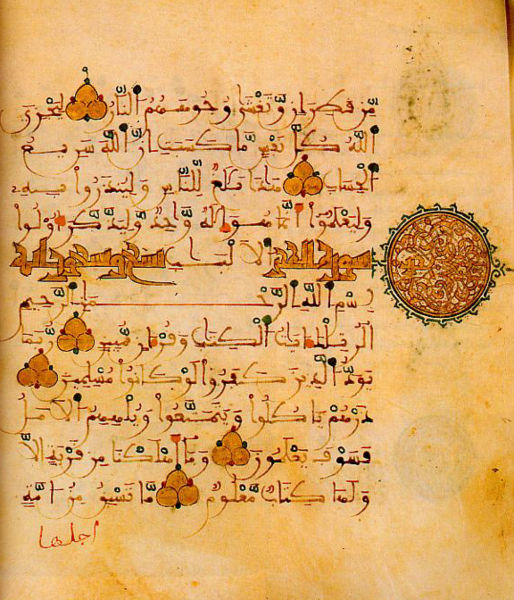 مّن قطران وّتغشى وجوههم النّار ليجزي
اللّه كلّ نفس مّا كسبت إنّ اللّه سريع
الحساب هذا بلغ للنّاس ولينذروا به
وليعلموا أنّما هو إله وّاحد وّليذّكّر أولوا
سورة الحجر الالبب تسع وتسعون اية
بسم اللّه الرّحمن الرّحيم
الر تلك ايت الكتب وقرءان مّبين رّبما
يودّ الذين كفروا لو كانوا مسلمين
ذرهم ياكلوا ويتمتّعوا ويلههم الامل
فسوف يعلمون وما أهلكنا من قرية الاّ
ولها كتاب مّعلوم مّا تسبق من امّة
اجلها